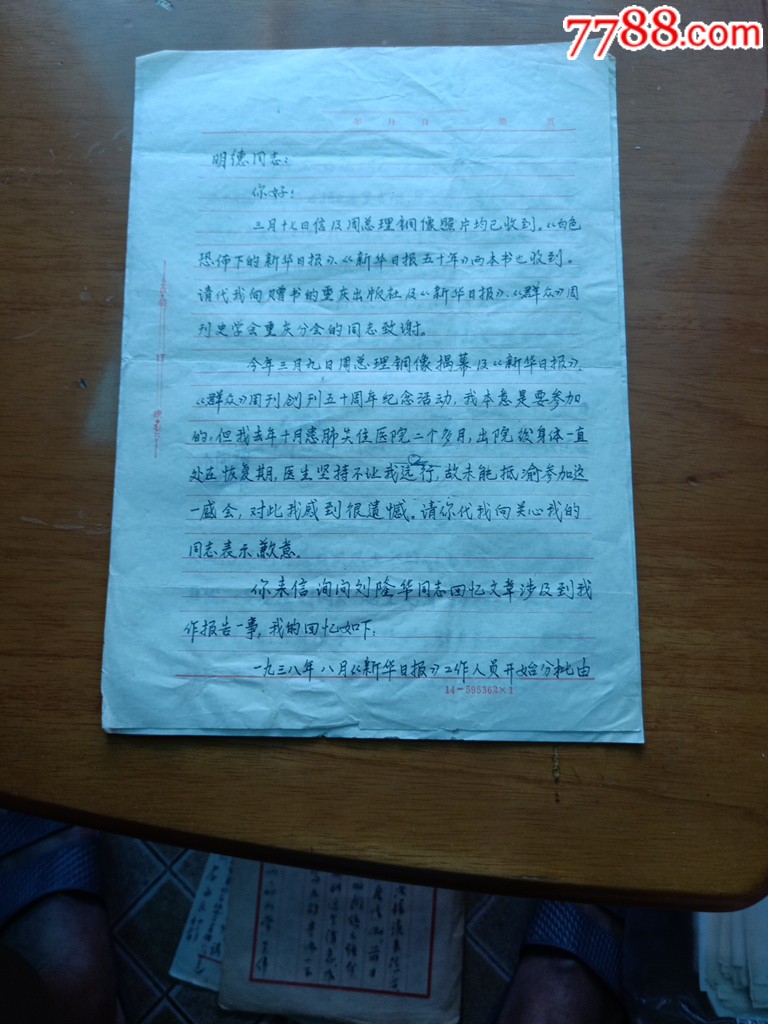 7788.com
年 月 日 第 页
明德同志：
你好！
三月十七日信及周总理铜像照片均已收到。《白色
恐怖下的新华日报》、《新华日报五十年》两本书也收到。
请代我向赠书的重庆出版社及《新华日报》、《群众》周
刊史学会重庆分会的同志致谢。
今年三月九日周总理铜像揭幕及《新华日报》、
《群众》周刊创刊五十周年纪念活动，我本意是要参加
的，但我去年十月患肺炎住医院二个多月，出院后身体一直
处在恢复期，医生坚持不让我远行，故未能抵渝参加这
一盛会，对此我感到很遗憾。请你代我向关心我的
同志表示歉意。
你来信询问刘隆华同志回忆文章涉及到我
作报告一事，我的回忆如下：
一九三八年八月《新华日报》工作人员开始分批由
14-595362×1